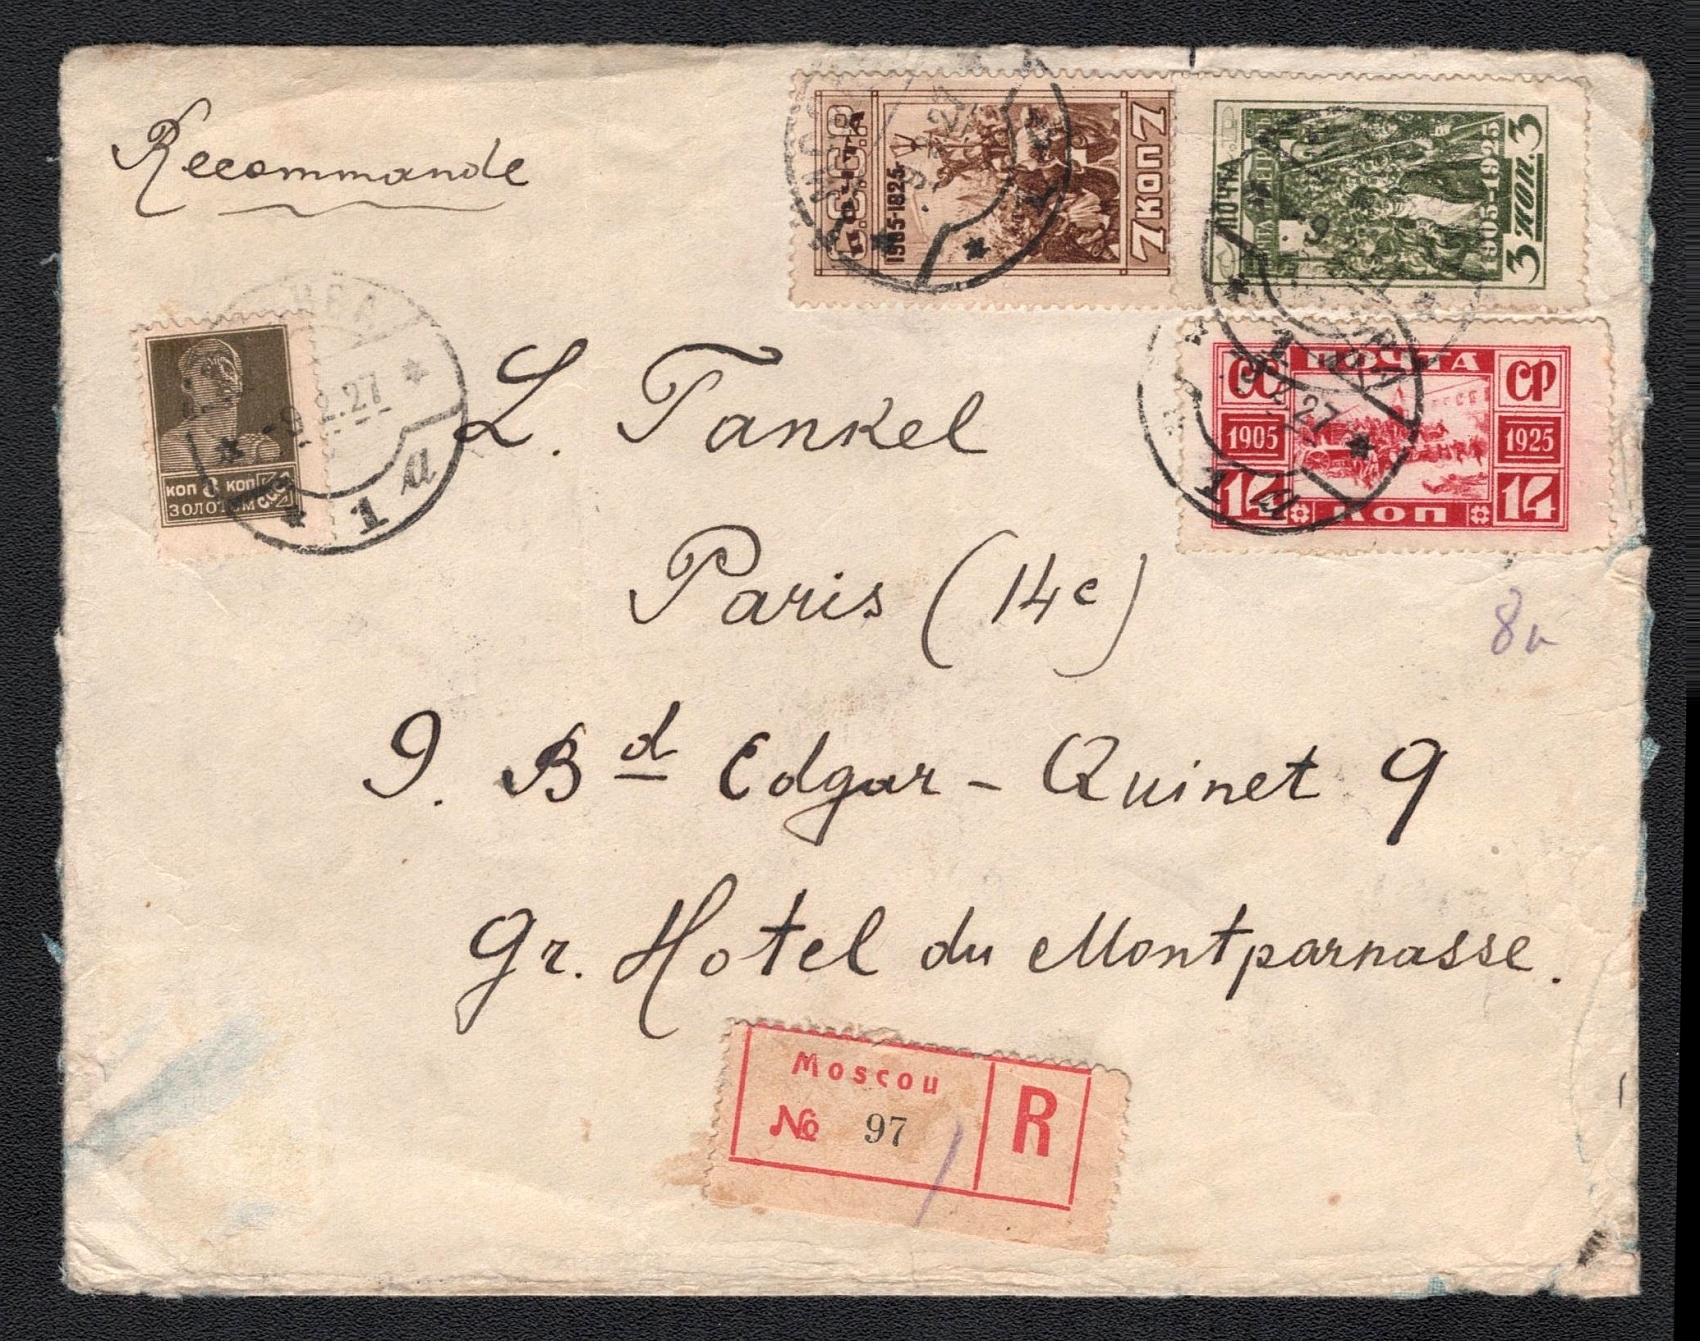 Recommande
С.С.С.Р
ПОЧТА
1905-1925
7 КОП 7
ПОЧТА
1905-1925
3 КОП. 3
-9.2.27
1 а
КОП 8 КОП
ЗОЛОТОМ
ПОЧТА
СС СР
1905 1925
14 КОП 14
L. Tankel
Paris (14e)
8
9. Bd Edgar - Quinet 9
gr. Hotel du Montparnasse.
Moscou
№ 97
R